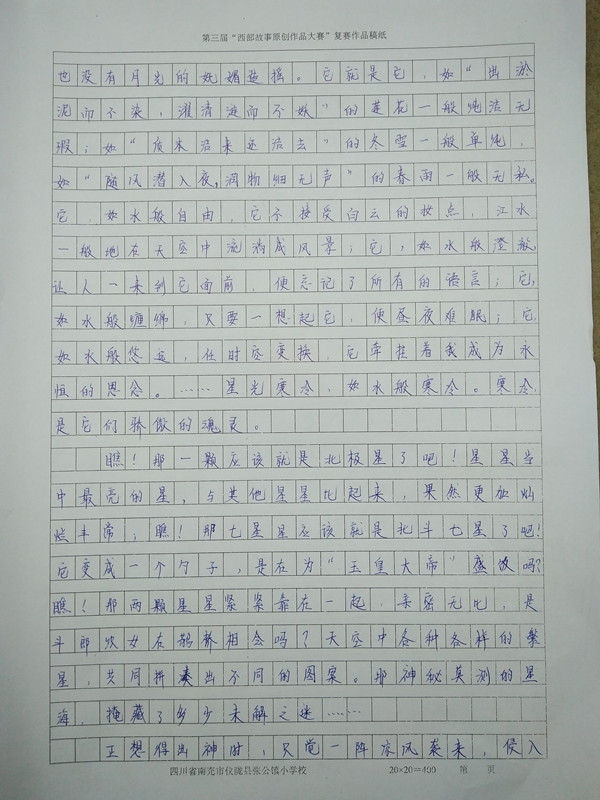 第三届“西部故事原创作品大赛”复赛作品稿纸
也没有月光的妩媚造摇。它就是它，如“出淤
泥而不染，濯清涟而不妖”的莲花一般纯洁无
瑕；如“质本洁来还洁去”的冬雪一般单纯，
如“随风潜入夜，润物细无声”的春雨一般无私。
它，如水般自由，它不接受白云的妆点，江水
一般地在天空中流淌成风景；它，如水般澄澈
让人一来到它面前，便忘记了所有的语言；它，
如水般缠绵，只要一想起它，便昼夜难眠；它，
如水般悠远，任时空变换，它牵挂着我成为永
恒的思念。……星光寒冷，如水般寒冷。寒冷，
是它们骄傲的魂灵。
瞧！那一颗应该就是北极星了吧！星星当
中最亮的星，与其他星星比起来，果然更加灿
烂丰常；瞧！那七星星应该就是北斗七星了吧！
它变成一个勺子，是在为“玉皇大帝”盛饭吗？
瞧！那两颗星星紧紧靠在一起，亲密无比，是
斗郎织女在鹊桥相会吗？天空中各种各样的繁
星，共同拼凑出不同的图案。那神秘莫测的星
海，掩藏了多少未解之迷……
正想得出神时，只觉一阵凉风袭来，侵入
四川省南充市仪陇县张公镇小学校 20×20=400 第 页